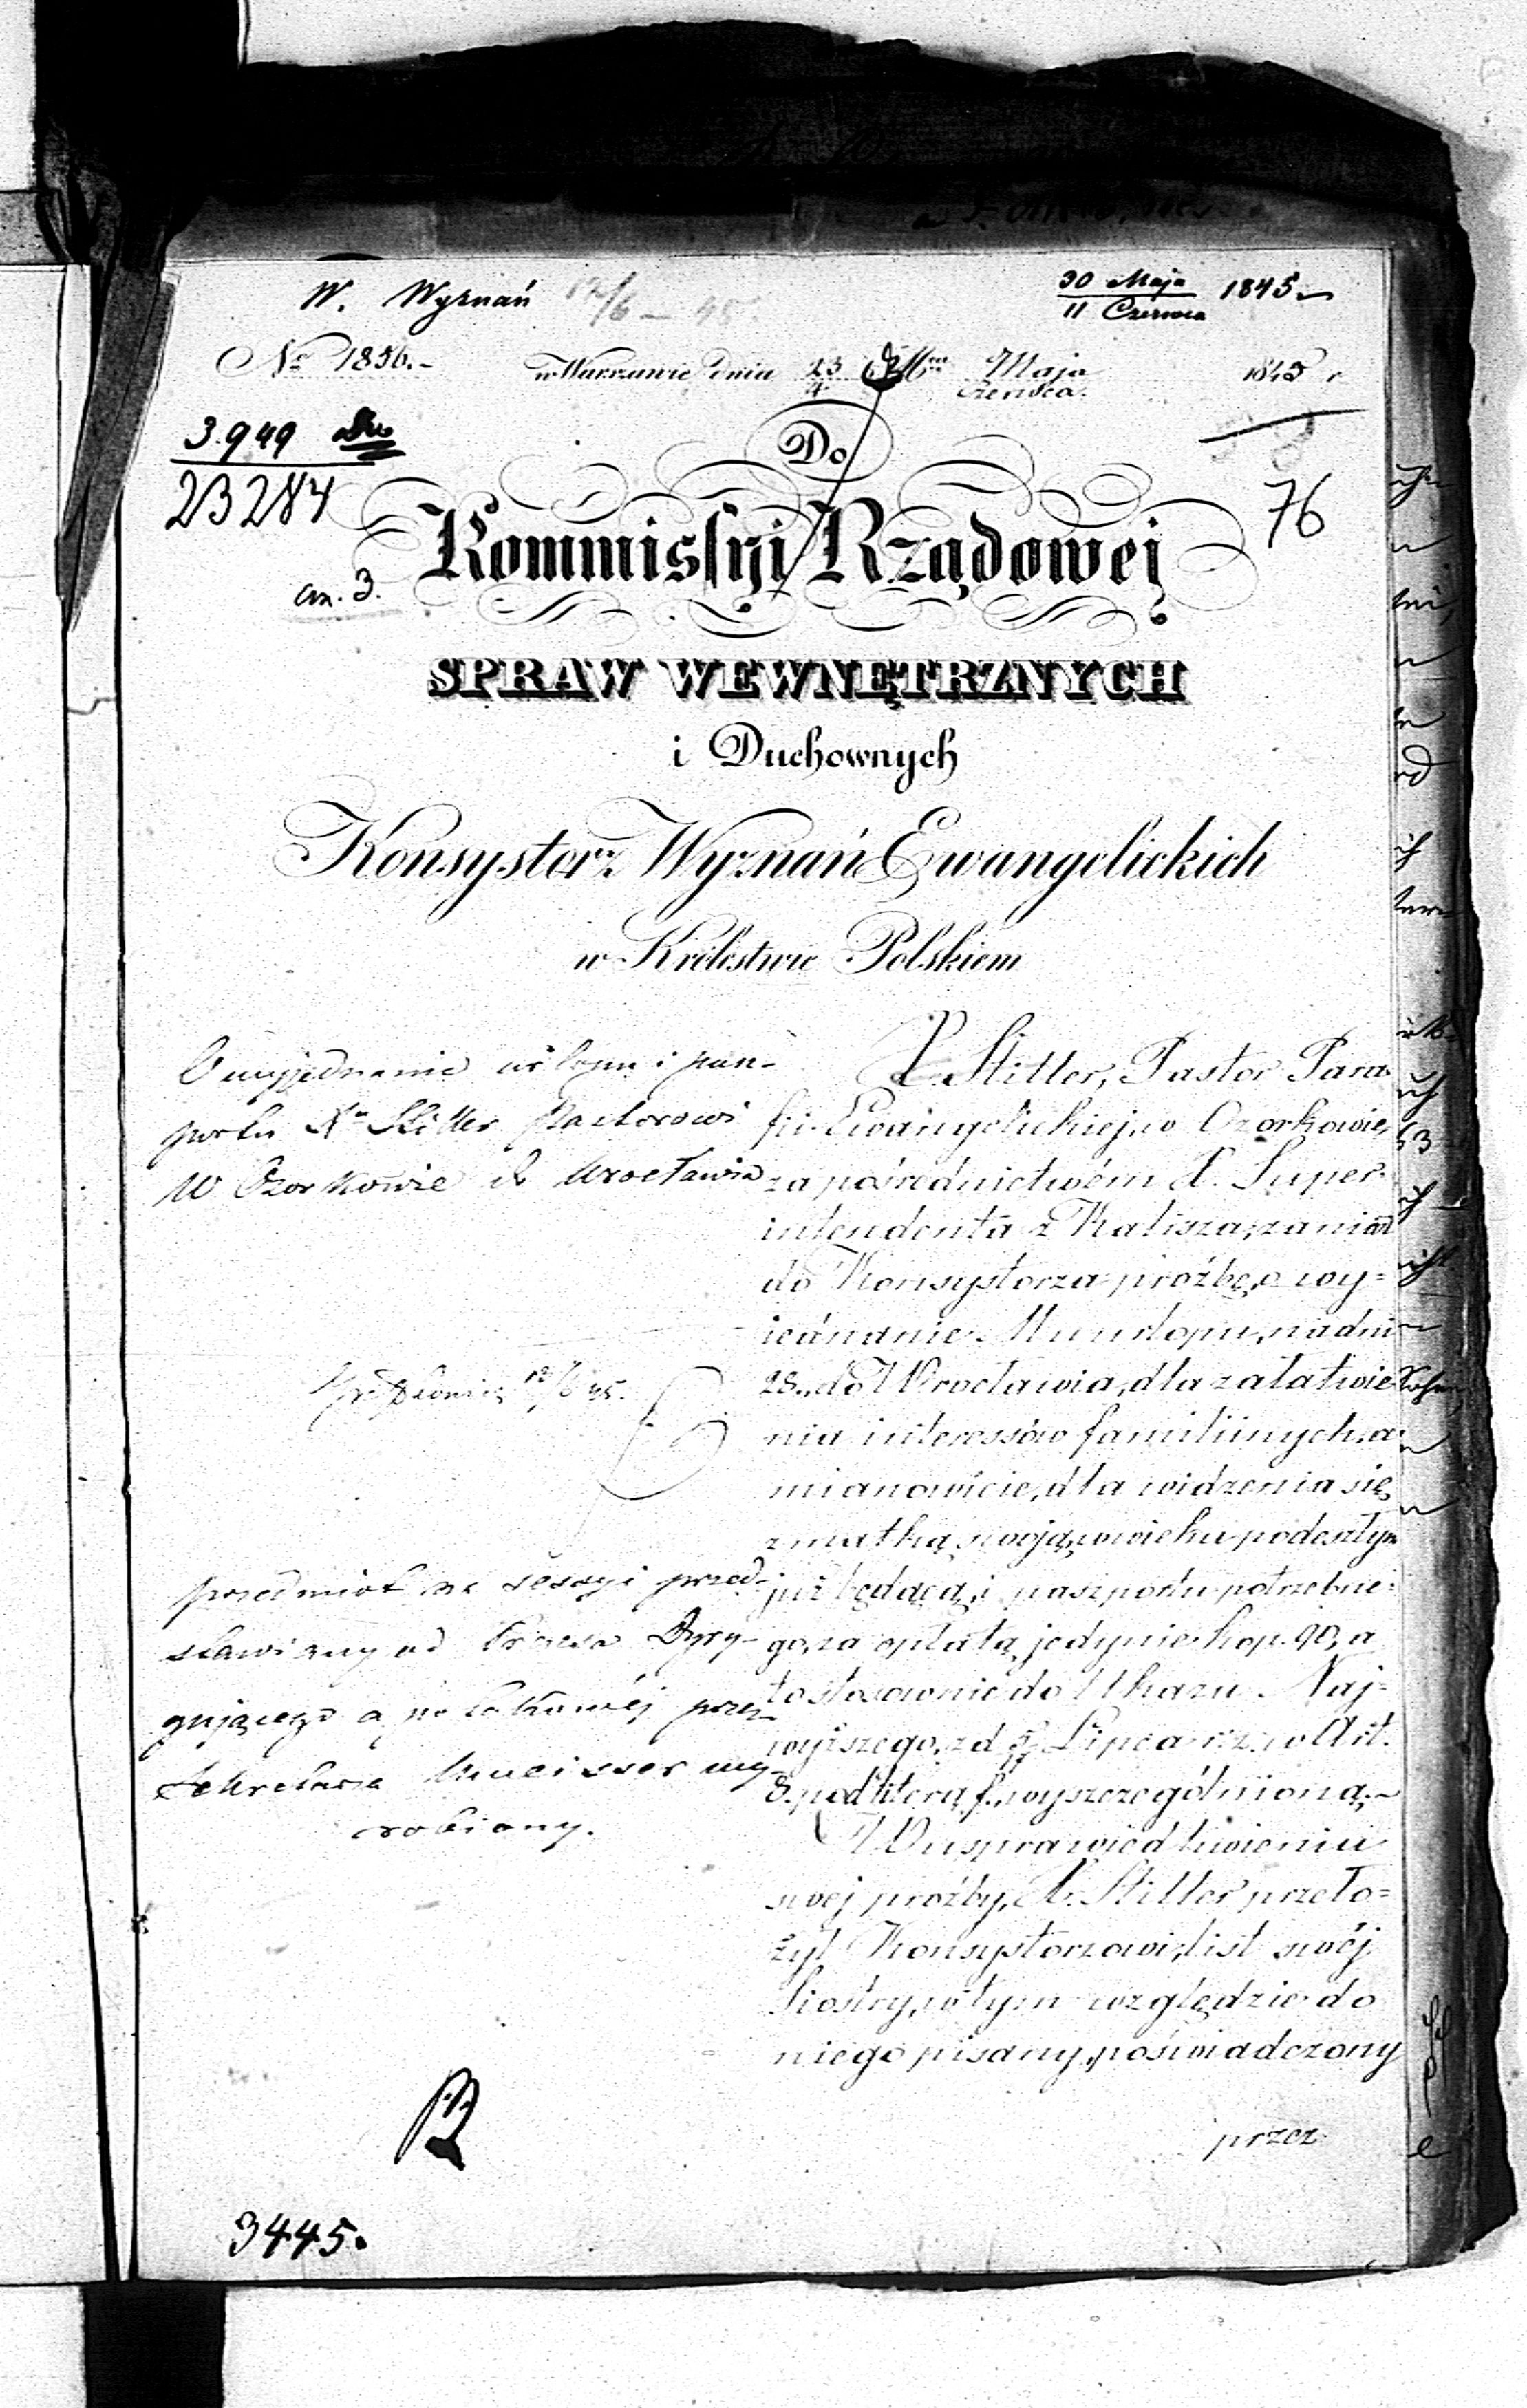 W. Wyznań 12/6 - 45
30 Maja
11 Czerwca 1845
No 1856.-
w Warszawie dnia 23/4 Maja
Czerwca. 1845 r
3949
23284
76
an. 3.
Do
Kommissyi Rządowej
SPRAW WEWNĘTRZNYCH
i Duchownych
Konsystorz Wyznań Ewangelickich
w Królestwie Polskiem
O wyjednanie urlopu i pasz-
portu Xu Stiller Pastorowi
w Ozorkowie do Wrocławia
12/6 45.
przedmiot na sessyi przed-
stawiony od Prezesa Dyry-
gującego a po takowéj przez
Sekretarza wy-
robiony.
3445.
X. Stiller, Pastor Para-
fii Ewangelickiej w Ozorkowie,
za pośrednictwém X. Super-
intendenta z Kalisza, zaniósł
do Konsystorza prozbę, o wy=
iednanie Mu urlopu, na dni
28., do Wrocławia, dla załatwie
nia interessów familiinych, a
mianowicie, dla widzenia się
z matką swoją, w wieku podeszłym
już będącą, i paszportu potrzebne=
go, za opłatą jedynie kop. 90, a
to stosownie do Ukazu Naj=
wyższego, z d. Lipca r. z. w Art.
8. pod literą f., wyszczególnioną.-
W usprawiedliwieniu
swej prozby, X. Stiller przeło=
żył Konsystorzowi, list swéj
Siostry, w tym względzie do
niego pisany, poświadczony
przez